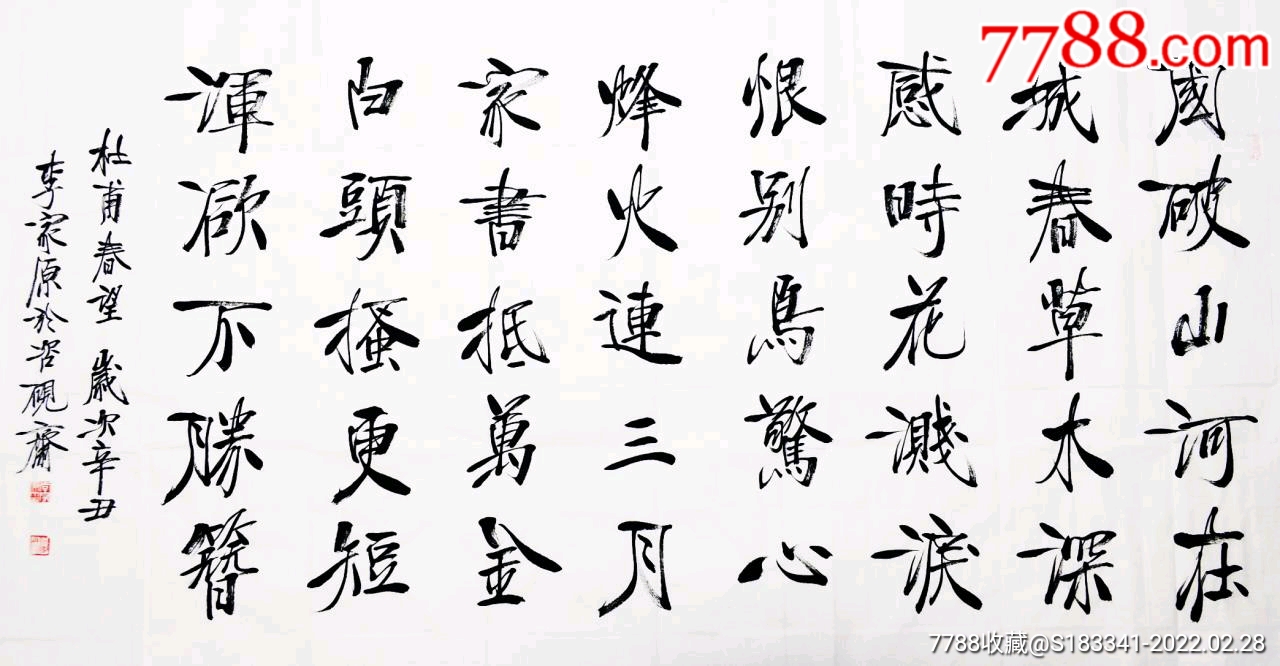 7788.com
國破山河在
城春草木深
感時花濺淚
恨别鳥驚心
烽火連三月
家書抵萬金
白頭搔更短
渾欲不勝簪
杜甫春望 歲次辛丑
李家原於 硯齋
7788收藏@S183341-2022.02.28